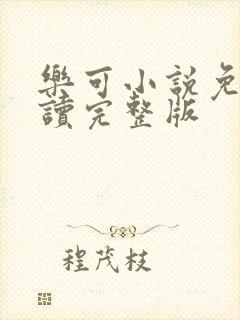 樂可小說免
讀完整版
程茂枝